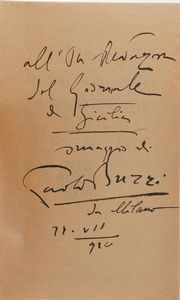 all'On Redazione
del Giornale
di
Sicilia
omaggio di
Paolo Buzzi
da Milano
VII